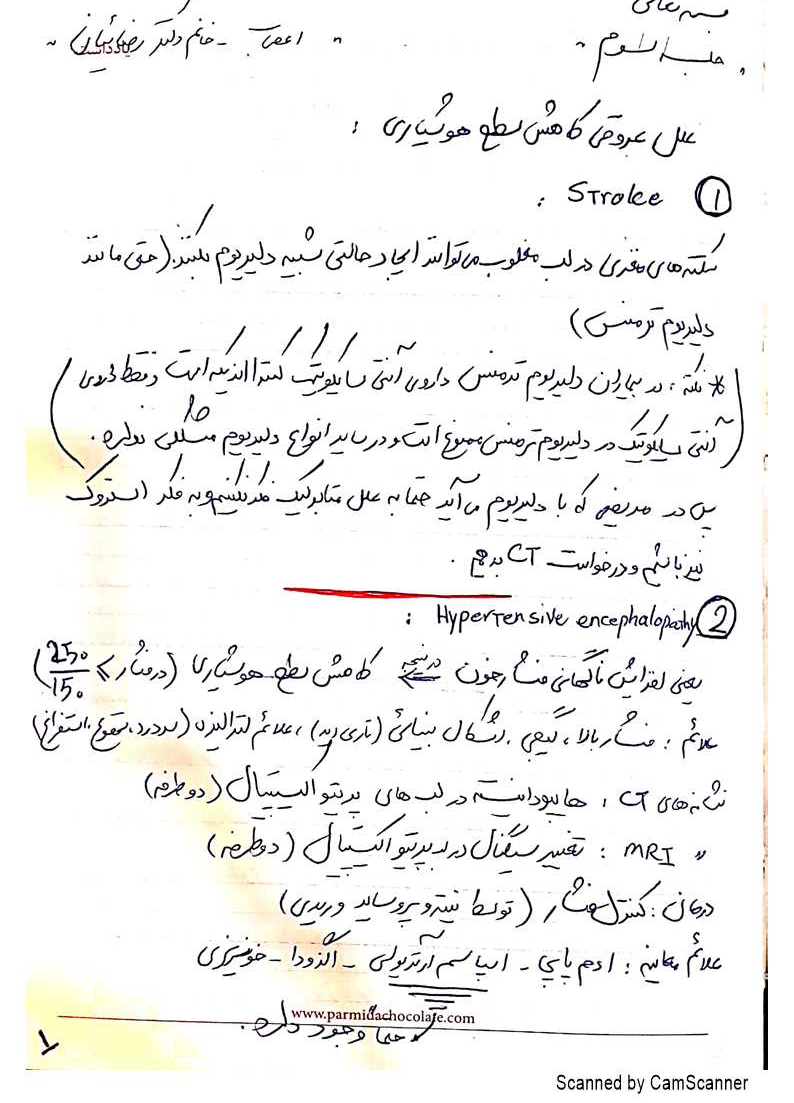 بسمه تعالی
جلسه سوم " اعصاب - خانم دکتر رضائیان "
علل عروقی کاهش سطح هوشیاری :
① Stroke :
سکته‌های مغزی در لب مغلوب می‌توانند ایجاد حالتی شبیه دلیریوم بکنند. (حتی مانند
دلیریوم ترمنس)
* نکته : در بیماران دلیریوم ترمنس داروی آنتی سایکوتیک کنتراندیکه است و فقط داروی
آنتی سایکوتیک در دلیریوم ترمنس ممنوع است و در سایر انواع دلیریوم مشکلی ندارد.
پس در مریضی که با دلیریوم می‌آید حتما به علل متابولیک فکر نکنیم و به فکر استروک
نیز باشیم و درخواست CT بدهیم .
② Hypertensive encephalopathy :
یعنی افزایش ناگهانی فشار خون در نتیجه کاهش سطح هوشیاری (در فشار ≥ 250/150)
علائم : فشار بالا ، گیجی ، اشکال بینائی (تاری دید) ، علائم لترالیزه (سردرد، تهوع، استفراغ)
نشانه‌های CT : هایپودانسیته در لب های پریتو اکسیپیتال (دوطرفه)
" MRI : تغییر سیگنال در لب پریتو اکسیپیتال (دوطرفه)
درمان : کنترل فشار (توسط نیتروپروساید وریدی)
علائم معاینه : ادم پاپی - اسپاسم آرتریولی - اگزودا - خونریزی
www.parmidachocolate.com
حتما وجود دارد.
1
Scanned by CamScanner